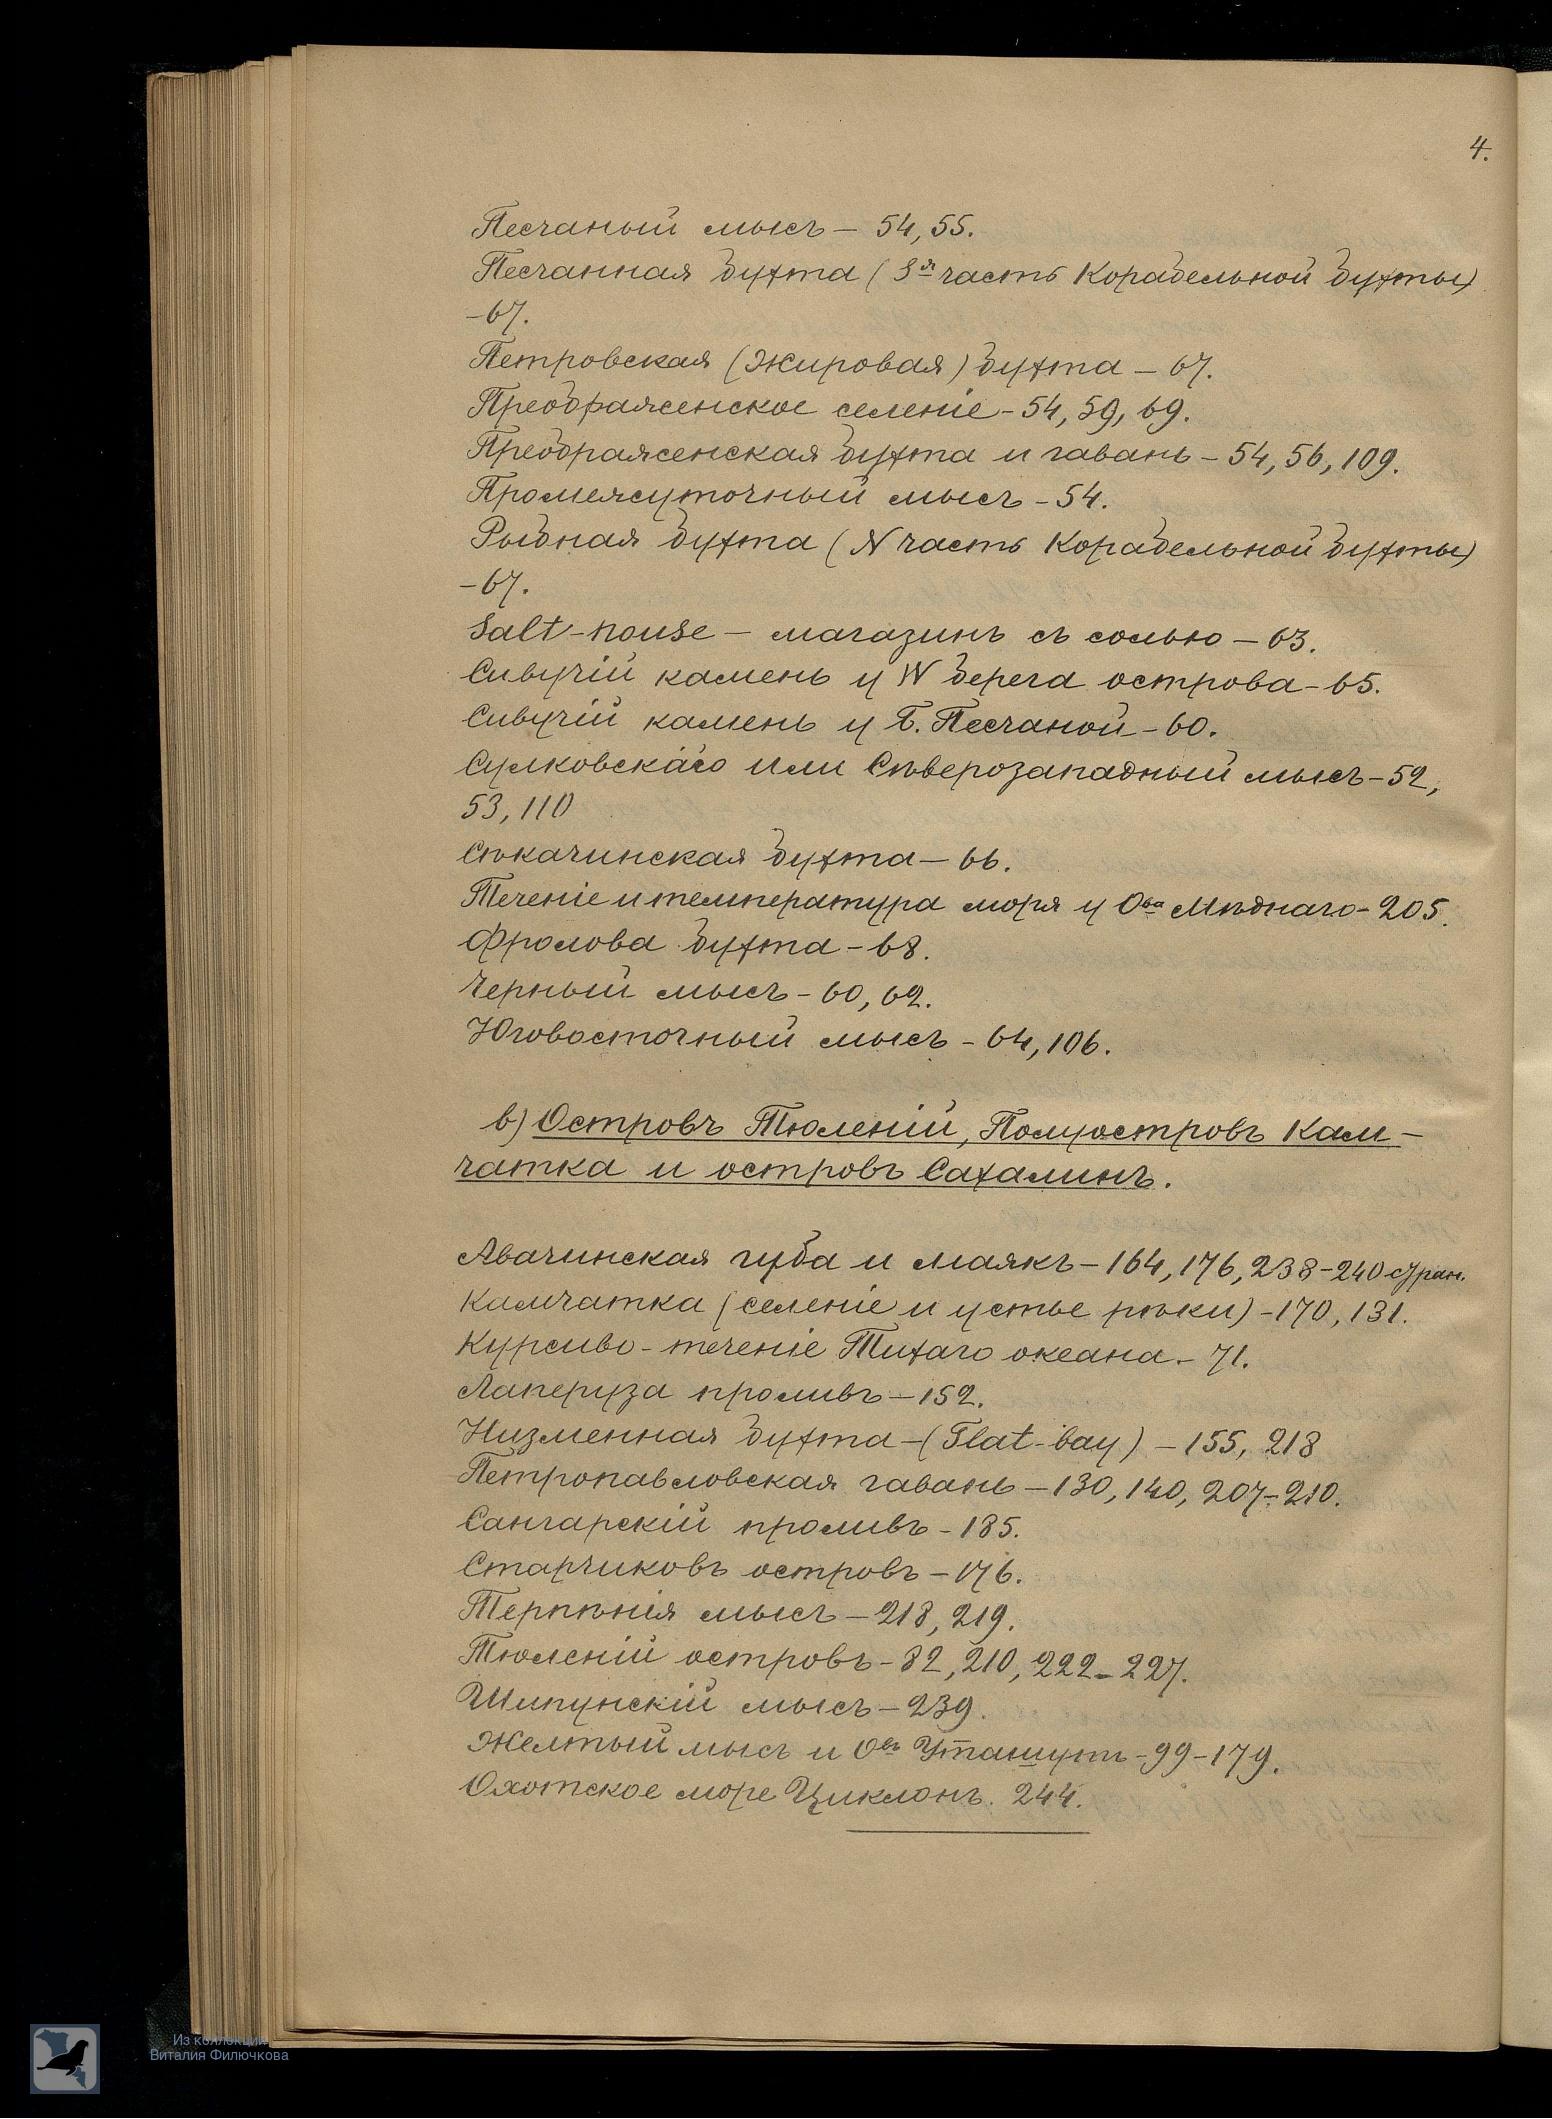 4.
Песчаный мысъ – 54, 55.
Песчанная бухта (3я часть Корабельной бухты)
– 67.
Петровская (Жировая) бухта – 67.
Преображенское селеніе – 54, 59, 69.
Преображенская бухта и гавань – 54, 56, 109.
Промежуточный мысъ – 54.
Рыбная бухта (N часть Корабельной бухты)
– 67.
Salt-house – магазинъ съ солью – 63.
Сивучій камень у W берега острова – 65.
Сивучій камень у Б. Песчаной – 60.
Сулковскаго или Сѣверозападный мысъ – 52,
53, 110
Сѣкачинская бухта – 66.
Теченіе и температура моря у Ова Мѣднаго – 205.
Фролова бухта – 68.
Черный мысъ – 60, 62.
Юговосточный мысъ – 64, 106.
в) Островъ Тюленій, Полуостровъ Кам-
чатка и островъ Сахалинъ.
Авачинская губа и маякъ – 164, 176, 238–240 стран.
Камчатка (селеніе и устье рѣки) – 170, 131.
Курсиво – теченіе Тихаго океана – 71.
Лаперуза проливъ – 152.
Низменная бухта – (Flat-bay) – 155, 218
Петропавловская гавань – 130, 140, 207–210.
Сангарскій проливъ – 185.
Старичковъ островъ – 176.
Терпѣнія мысъ – 218, 219.
Тюленій островъ – 82, 210, 222–227.
Шипунскій мысъ – 239.
Желтый мысъ и Овъ Уташутъ – 99–179.
Охотское море Циклонъ. 244.
Из коллекции
Виталия Филючкова